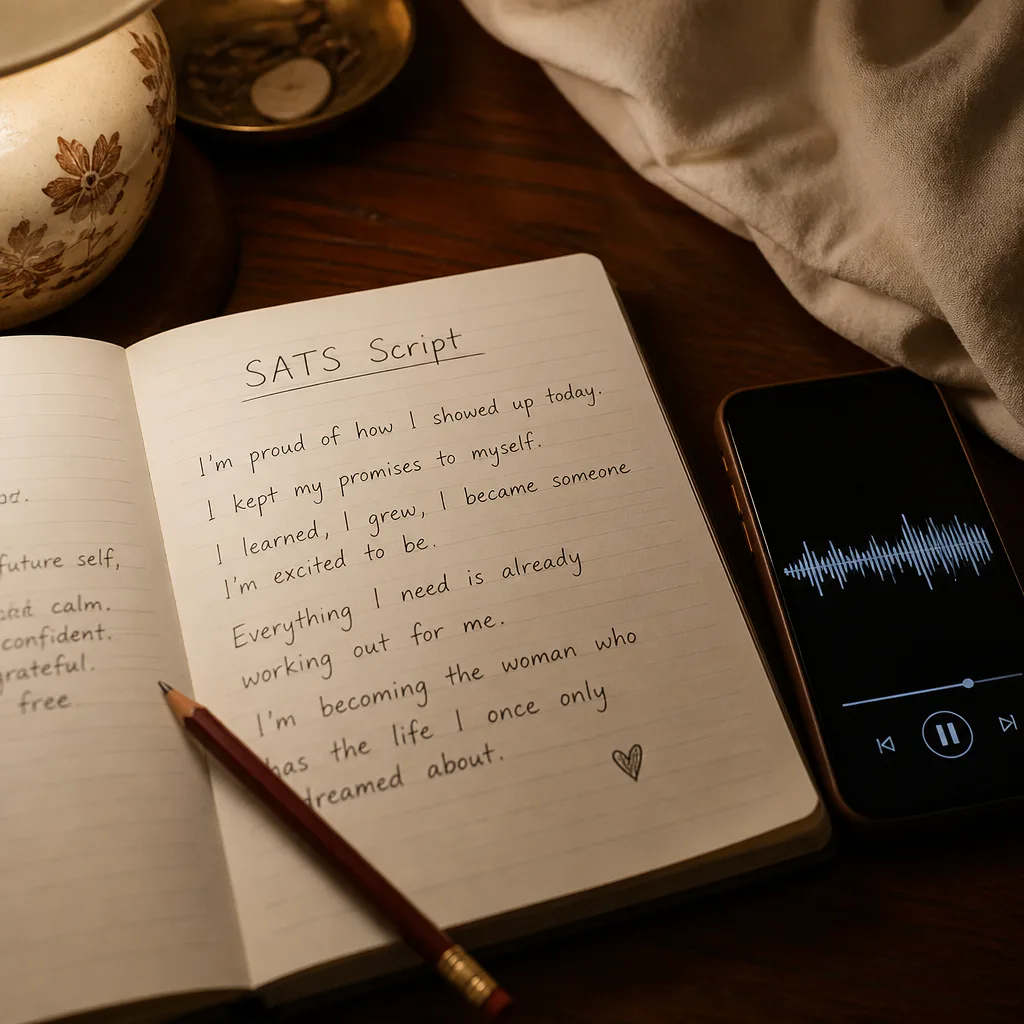 future self,
calm.
confident.
grateful.
free
SATS Script
I'm proud of how I showed up today.
I kept my promises to myself.
I learned, I grew, I became someone
I'm excited to be.
Everything I need is already
working out for me.
I'm becoming the woman who
has the life I once only
dreamed about.